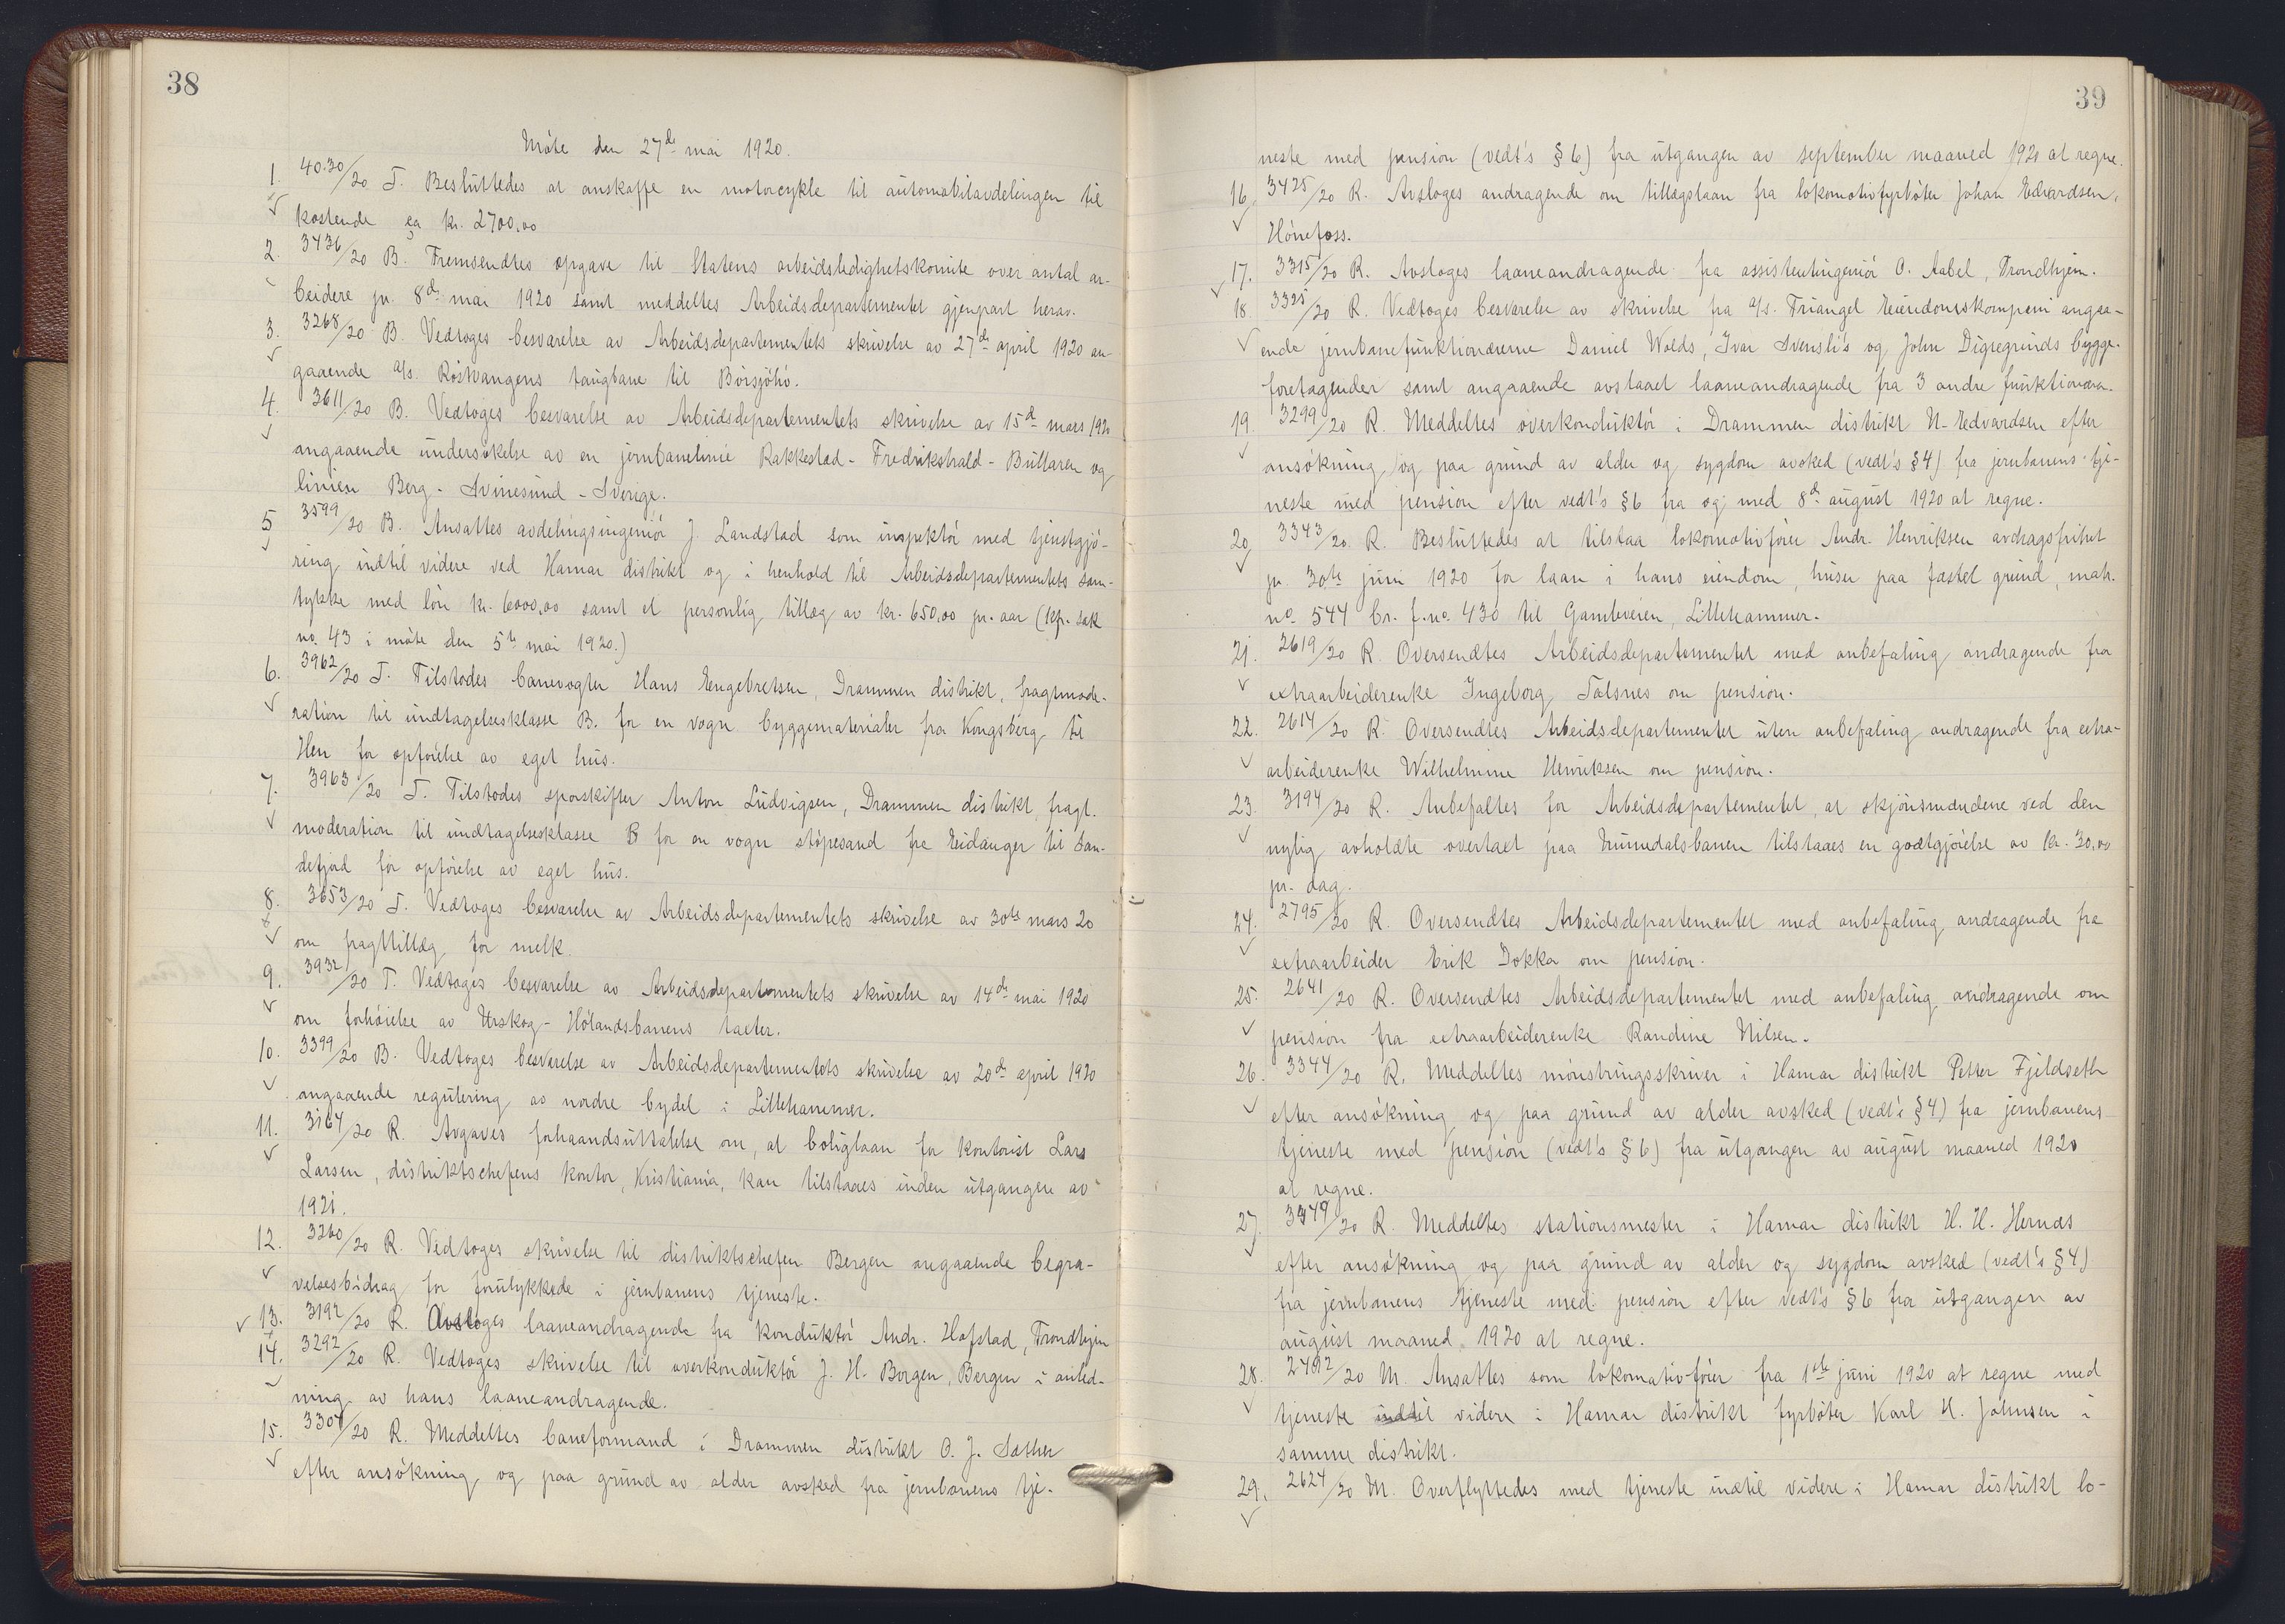 38
Möte den 27de mai 1920.
1. 4030/20 T. Besluttedes at anskaffe en motorcykle til automobilavdelingen til
kostende ca kr. 2700,00
2. 3436/20 B. Fremsendtes opgave til Statens arbeidsledighetskomite over antal ar-
beidere pr. 8de mai 1920 samt meddeltes Arbeidsdepartementet gjenpart herav.
3. 3268/20 B. Vedtoges besvarelse av Arbeidsdepartementets skrivelse av 27de april 1920 an-
gaaende a/s. Röstvangens taugbane til Börsjöhö.
4. 3611/20 B. Vedtoges besvarelse av Arbeidsdepartementets skrivelse av 15de mars 1920
angaaende undersökelse av en jernbanelinie Rakkestad - Fredrikshald - Bullaren og
linien Berg - Svinesund - Sverige.
5 3599/20 B. Ansattes avdelingsingeniör J. Landstad som inspektör med tjenstgjö-
ring indtil videre ved Hamar distrikt og i henhold til Arbeidsdepartementets sam-
tykke med lön kr. 6000,00 samt et personlig tillæg av kr. 650,00 pr. aar (kfr. sak
no. 43 i möte den 5te mai 1920.)
6. 3962/20 T. Tilstodes banevogter Hans Engebretsen, Drammen distrikt, fragtmode-
ration til undtagelsesklasse B. for en vogn byggematerialer fra Kongsberg til
Hen for opförelse av eget hus.
7. 3963/20 T. Tilstodes sporskifter Anton Ludvigsen, Drammen distrikt fragt-
moderation til undtagelsesklasse B for en vogn stöpesand fra Eidanger til San-
defjord for opförelse av eget hus.
8. 3653/20 T. Vedtoges besvarelse av Arbeidsdepartementets skrivelse av 30te mars 20
om fragttillæg for melk.
9. 3932/20 T. Vedtoges besvarelse av Arbeidsdepartementets skrivelse av 14de mai 1920
om forhöielse av Urskog - Hölandsbanens takter.
10. 3399/20 B. Vedtoges besvarelse av Arbeidsdepartementets skrivelse av 20de april 1920
angaaende regulering av nordre bydel i Lillehammer.
11. 3164/20 R. Avgaves forhaandsuttalelse om, at boliglaan for kontorist Lars
Larsen, distriktschefens kontor, Kristiania, kan tilstaaes inden utgangen av
1921.
12. 3260/20 R. Vedtoges skrivelse til distriktschefen Bergen angaaende begra-
velsesbidrag for forulykkede i jernbanens tjeneste.
13. 3192/20 R. Avsloges laaneandragende fra konduktör Andr. Hofstad, Trondhjem
14. 3292/20 R. Vedtoges skrivelse til overkonduktör J. H. Borgen, Bergen i anled-
ning av hans laaneandragende.
15. 3304/20 R. Meddeltes baneformand i Drammen distrikt O. J. Sæther
efter ansökning og paa grund av alder avsked fra jernbanens tje-
39
neste med pension (vedt's § 6) fra utgangen av september maaned 1920 at regne.
16. 3425/20 R. Avsloges andragende om tillægslaan fra lokomotivfyrböter Johan Edvardsen,
Hönefoss.
17. 3315/20 R. Avsloges laaneandragende fra assistentingeniör O. Aabel, Trondhjem.
18. 3325/20 R. Vedtoges besvarelse av skrivelse fra a/s. Triangel Eiendomskompani angaa-
ende jernbanefunktionærerne Daniel Wolds, Ivar Svensli's og John Digregrinds bygge-
foretagender samt angaaende avslaaet laaneandragende fra 3 andre funktionærer.
19. 3299/20 R. Meddeltes overkonduktör i Drammen distrikt N. Edvardsen efter
ansökning og paa grund av alder og sygdom avsked (vedt's § 4) fra jernbanens tje-
neste med pension efter vedt's § 6 fra og med 8de august 1920 at regne.
20. 3343/20. R. Besluttedes at tilstaa lokomotivförer Andr. Henriksen avdragsfrihet
pr. 30te juni 1920 for laan i hans eiendom, huser paa fæstet grund, matr.
no. 544 br. f. no. 430 til Gamleveien, Lillehammer.
21. 2619/20 R. Oversendtes Arbeidsdepartementet med anbefaling andragende fra
extraarbeiderenke Ingeborg Tolsnes om pension.
22. 2614/20 R. Oversendtes Arbeidsdepartementet uten anbefaling andragende fra extra-
arbeiderenke Wilhelmine Henriksen om pension.
23. 3194/20 R. Anbefaltes for Arbeidsdepartementet, at skjönsmændene ved den
nylig avholdte overtaxt paa Numedalsbanen tilstaaes en godtgjörelse av kr. 30,00
pr. dag.
24. 2795/20 R. Oversendtes Arbeidsdepartementet med anbefaling andragende fra
extraarbeider Erik Dokka om pension.
25. 2641/20 R. Oversendtes Arbeidsdepartementet med anbefaling andragende om
pension fra extraarbeiderenke Randine Nilsen.
26. 3344/20 R. Meddeltes mönstringsskriver i Hamar distrikt Petter Fjeldseth
efter ansökning og paa grund av alder avsked (vedt's § 4) fra jernbanens
tjeneste med pension (vedt's § 6) fra utgangen av august maaned 1920
at regne.
27. 3349/20 R. Meddeltes stationsmester i Hamar distrikt H. H. Hernæs
efter ansökning og paa grund av alder og sygdom avsked (vedt's § 4)
fra jernbanens tjeneste med pension efter vedt's § 6 fra utgangen av
august maaned 1920 at regne.
28. 2492/20 M. Ansattes som lokomotivförer fra 1ste juni 1920 at regne med
tjeneste indtil videre i Hamar distrikt fyrböter Karl H. Johnsen i
samme distrikt.
29. 2624/20 M. Overflyttedes med tjeneste indtil videre i Hamar distrikt lo-